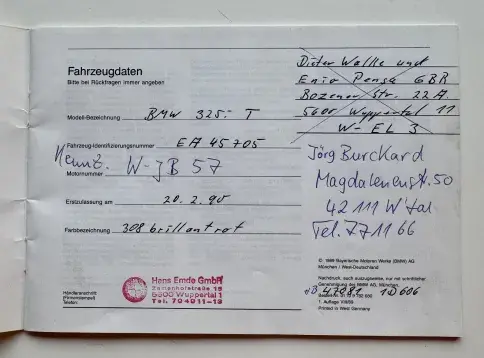 Fahrzeugdaten
Bitte bei Rückfragen immer angeben
Modell-Bezeichnung BMW 325i T
Fahrzeug-Identifizierungsnummer EA 45705
Kennz. W-JB 57
Motornummer
Erstzulassung am 20.2.90
Farbbezeichnung 308 brillantrot
Händleranschrift
(Firmenstempel)
Telefon
Hans Emde GmbH
5600 Wuppertal 1
Tel. 704011-13
Dieter Walke und
Enio Pensa GBR
Bozener Str. 22A
5600 Wuppertal 11
W-EL 3
Jörg Burckard
Magdalenenst. 50
42111 Wtal
Tel. 771166
© 1989 Bayerische Motoren Werke (BMW) AG
München / West-Deutschland
Nachdruck, auch auszugsweise, nur mit schriftlicher
Genehmigung der BMW AG, München.
47081 1D606
Printed in West Germany